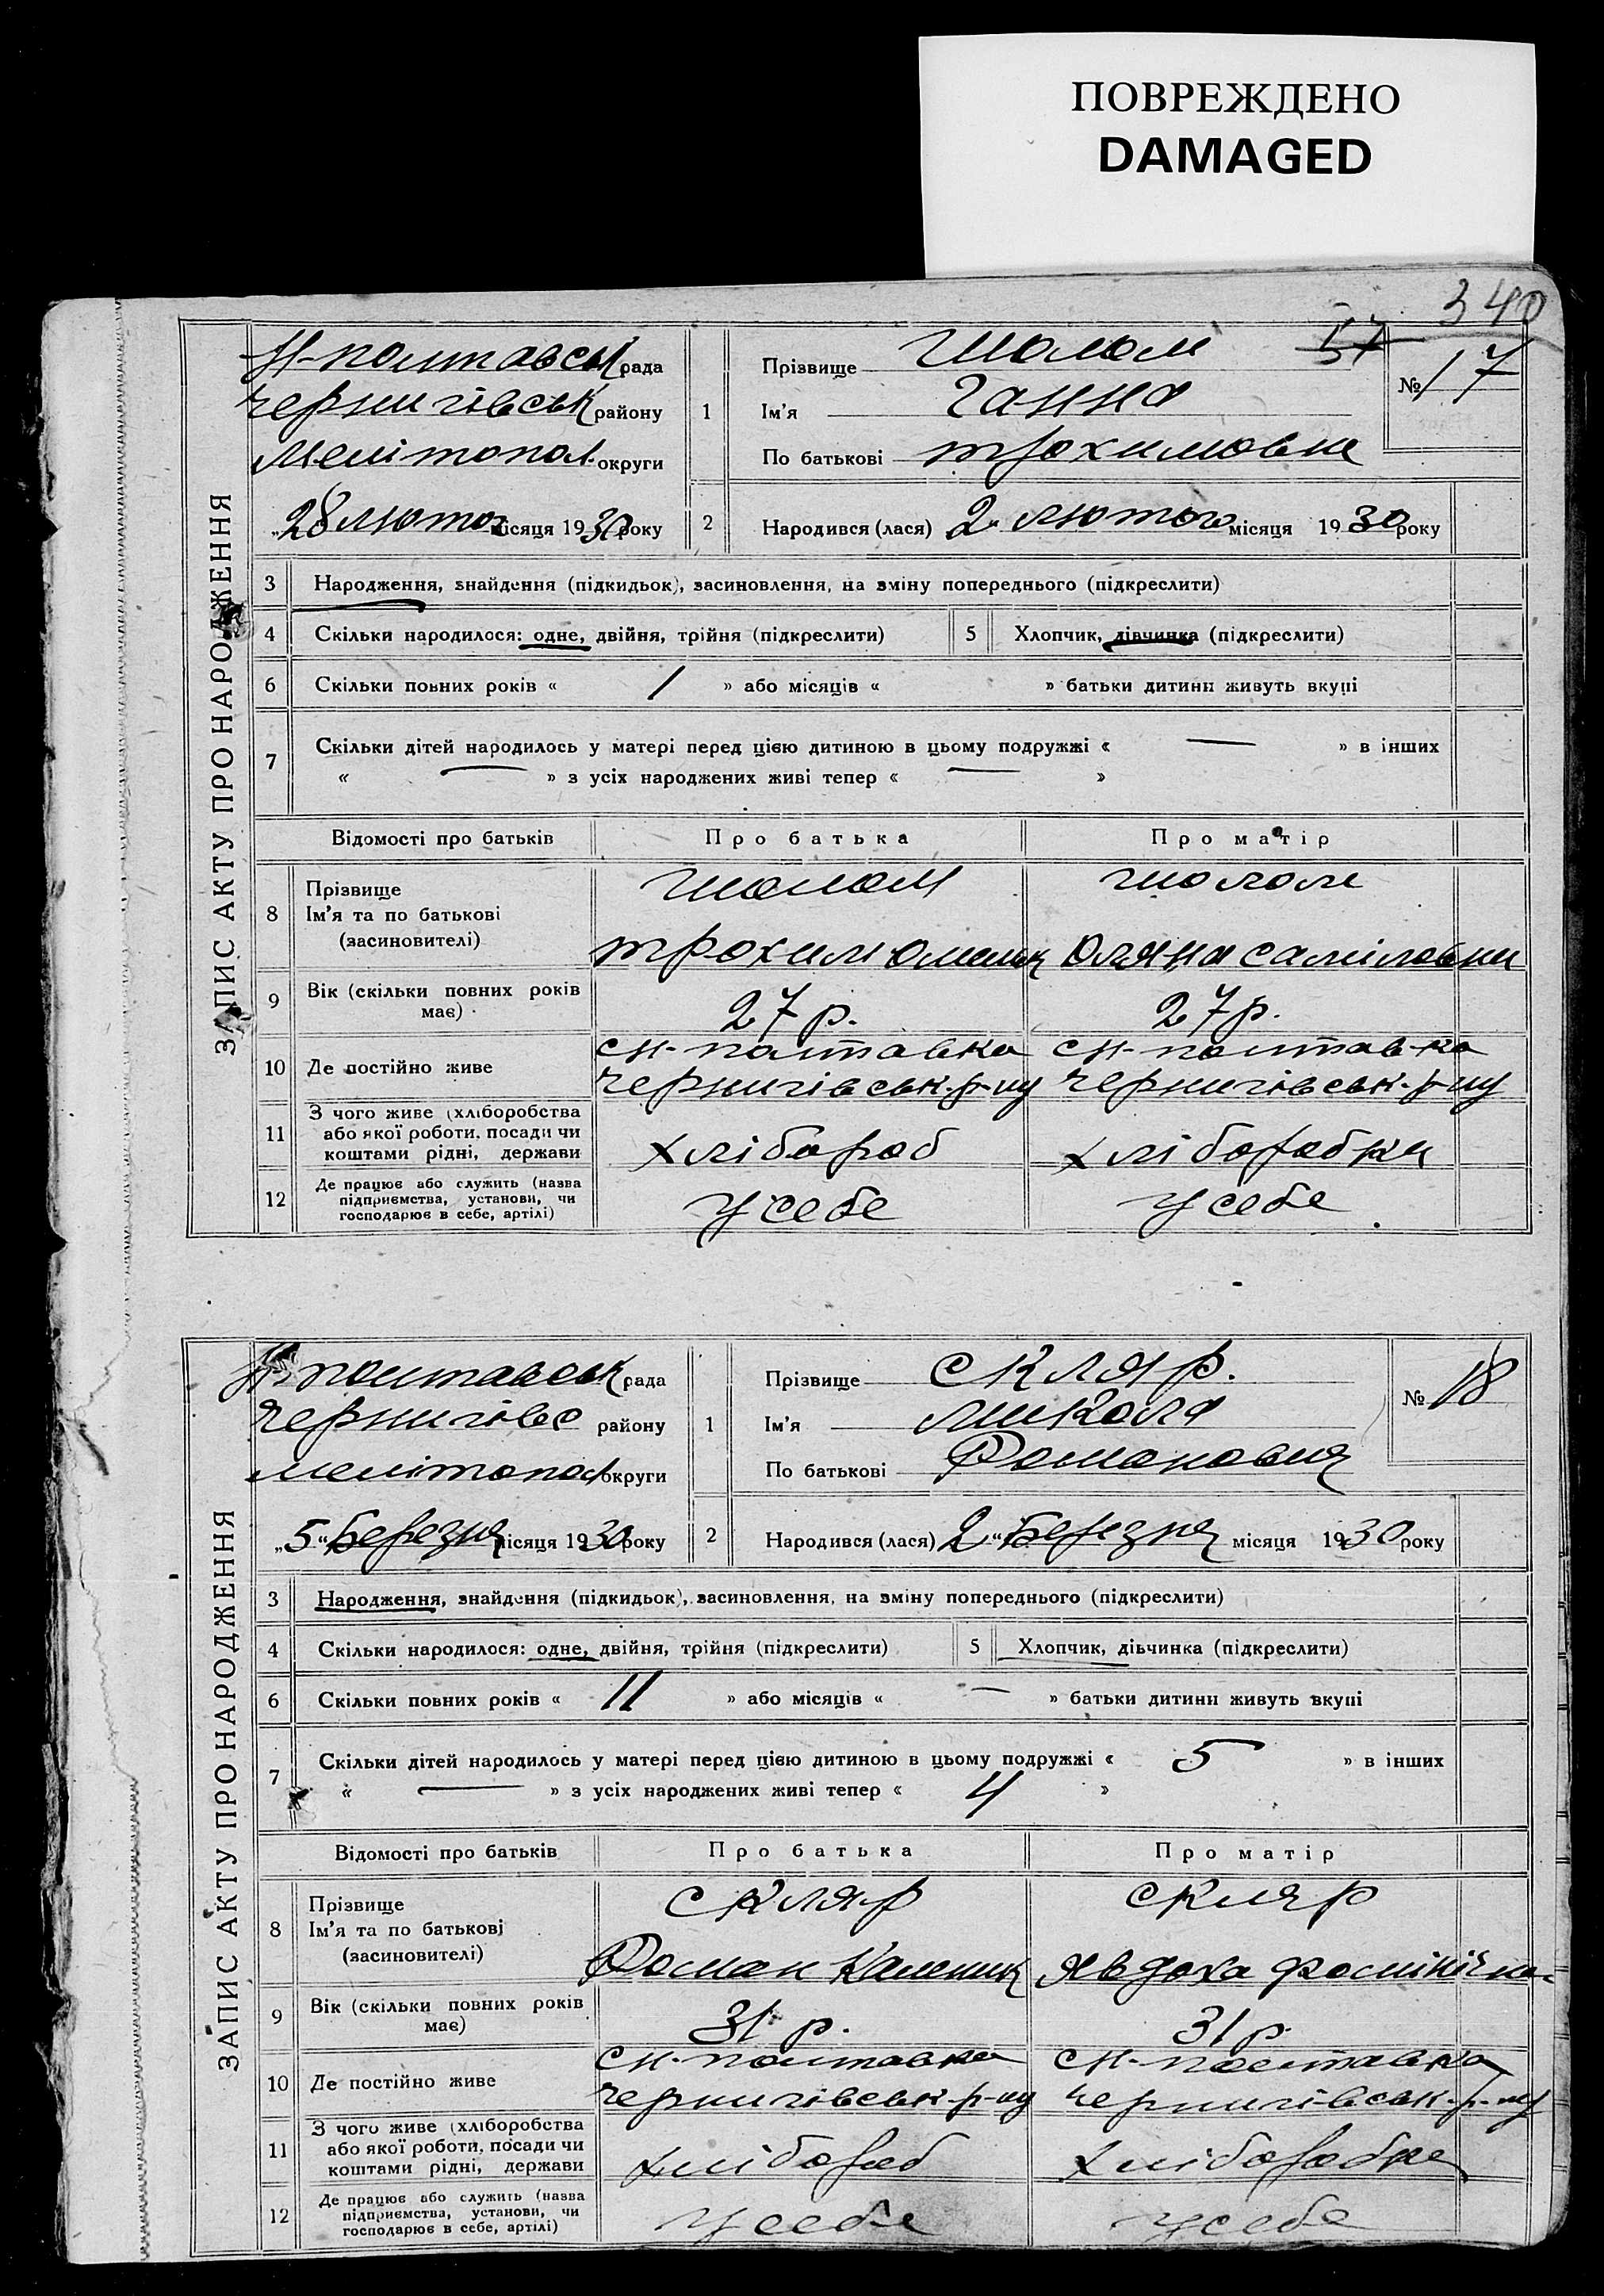 ПОВРЕЖДЕНО
DAMAGED
340
ЗАПИС АКТУ ПРО НАРОДЖЕННЯ
Н-полтавськ рада
Чернигівськ району
Мелітопол. округи
„28 лютого місяця 1930 року
1
Прізвище Шолом
Ім'я Ганна
По батькові Трохимовна
57
№ 17
2
Народився (лася) 2 лютого місяця 1930 року
3 Народження, знайдення (підкидьок), засиновлення, на зміну попереднього (підкреслити)
4 Скільки народилося: одне, двійня, трійня (підкреслити) 5 Хлопчик, дівчинка (підкреслити)
6 Скільки повних років « 1 » або місяців « » батьки дитини живуть вкупі
7 Скільки дітей народилось у матері перед цією дитиною в цьому подружжі « — » в інших
« — » з усіх народжених живі тепер « — »
Відомості про батьків Про батька Про матір
8 Прізвище
Ім'я та по батькові
(засиновителі)
Шолом
Трохим
Шолом
Оляна
9 Вік (скільки повних років
має)
27 р. 27 р.
10 Де постійно живе
с Н-полтавка с Н-полтавка
Чернигівськ. р-ну Чернигівськ. р-ну
11 З чого живе (хліборобства
або якої роботи, посади чи
коштами рідні, держави
хлібороб хліборобка
12 Де працює або служить (назва
підприємства, установи, чи
господарює в себе, артілі)
у себе у себе
ЗАПИС АКТУ ПРО НАРОДЖЕННЯ
Н-полтавськ рада
Чернигівс району
Мелітопол округи
„5“ Березня місяця 1930 року
1
Прізвище Скляр.
Ім'я Микола
По батькові Романович
№ 18
2
Народився (лася) 2 “ Березня місяця 1930 року
3 Народження, знайдення (підкидьок), засиновлення, на зміну попереднього (підкреслити)
4 Скільки народилося: одне, двійня, трійня (підкреслити) 5 Хлопчик, дівчинка (підкреслити)
6 Скільки повних років « 11 » або місяців « — » батьки дитини живуть вкупі
7 Скільки дітей народилось у матері перед цією дитиною в цьому подружжі « 5 » в інших
« — » з усіх народжених живі тепер « 4 »
Відомості про батьків Про батька Про матір
8 Прізвище
Ім'я та по батькові
(засиновителі)
Скляр
Роман
Скляр
Явдоха
9 Вік (скільки повних років
має)
31 р. 31 р.
10 Де постійно живе
с Н-полтавка с Н-полтавка
Чернигівськ. р-ну Чернигівськ. р-ну
11 З чого живе (хліборобства
або якої роботи, посади чи
коштами рідні, держави
хлібороб хліборобка
12 Де працює або служить (назва
підприємства, установи, чи
господарює в себе, артілі)
у себе у себе